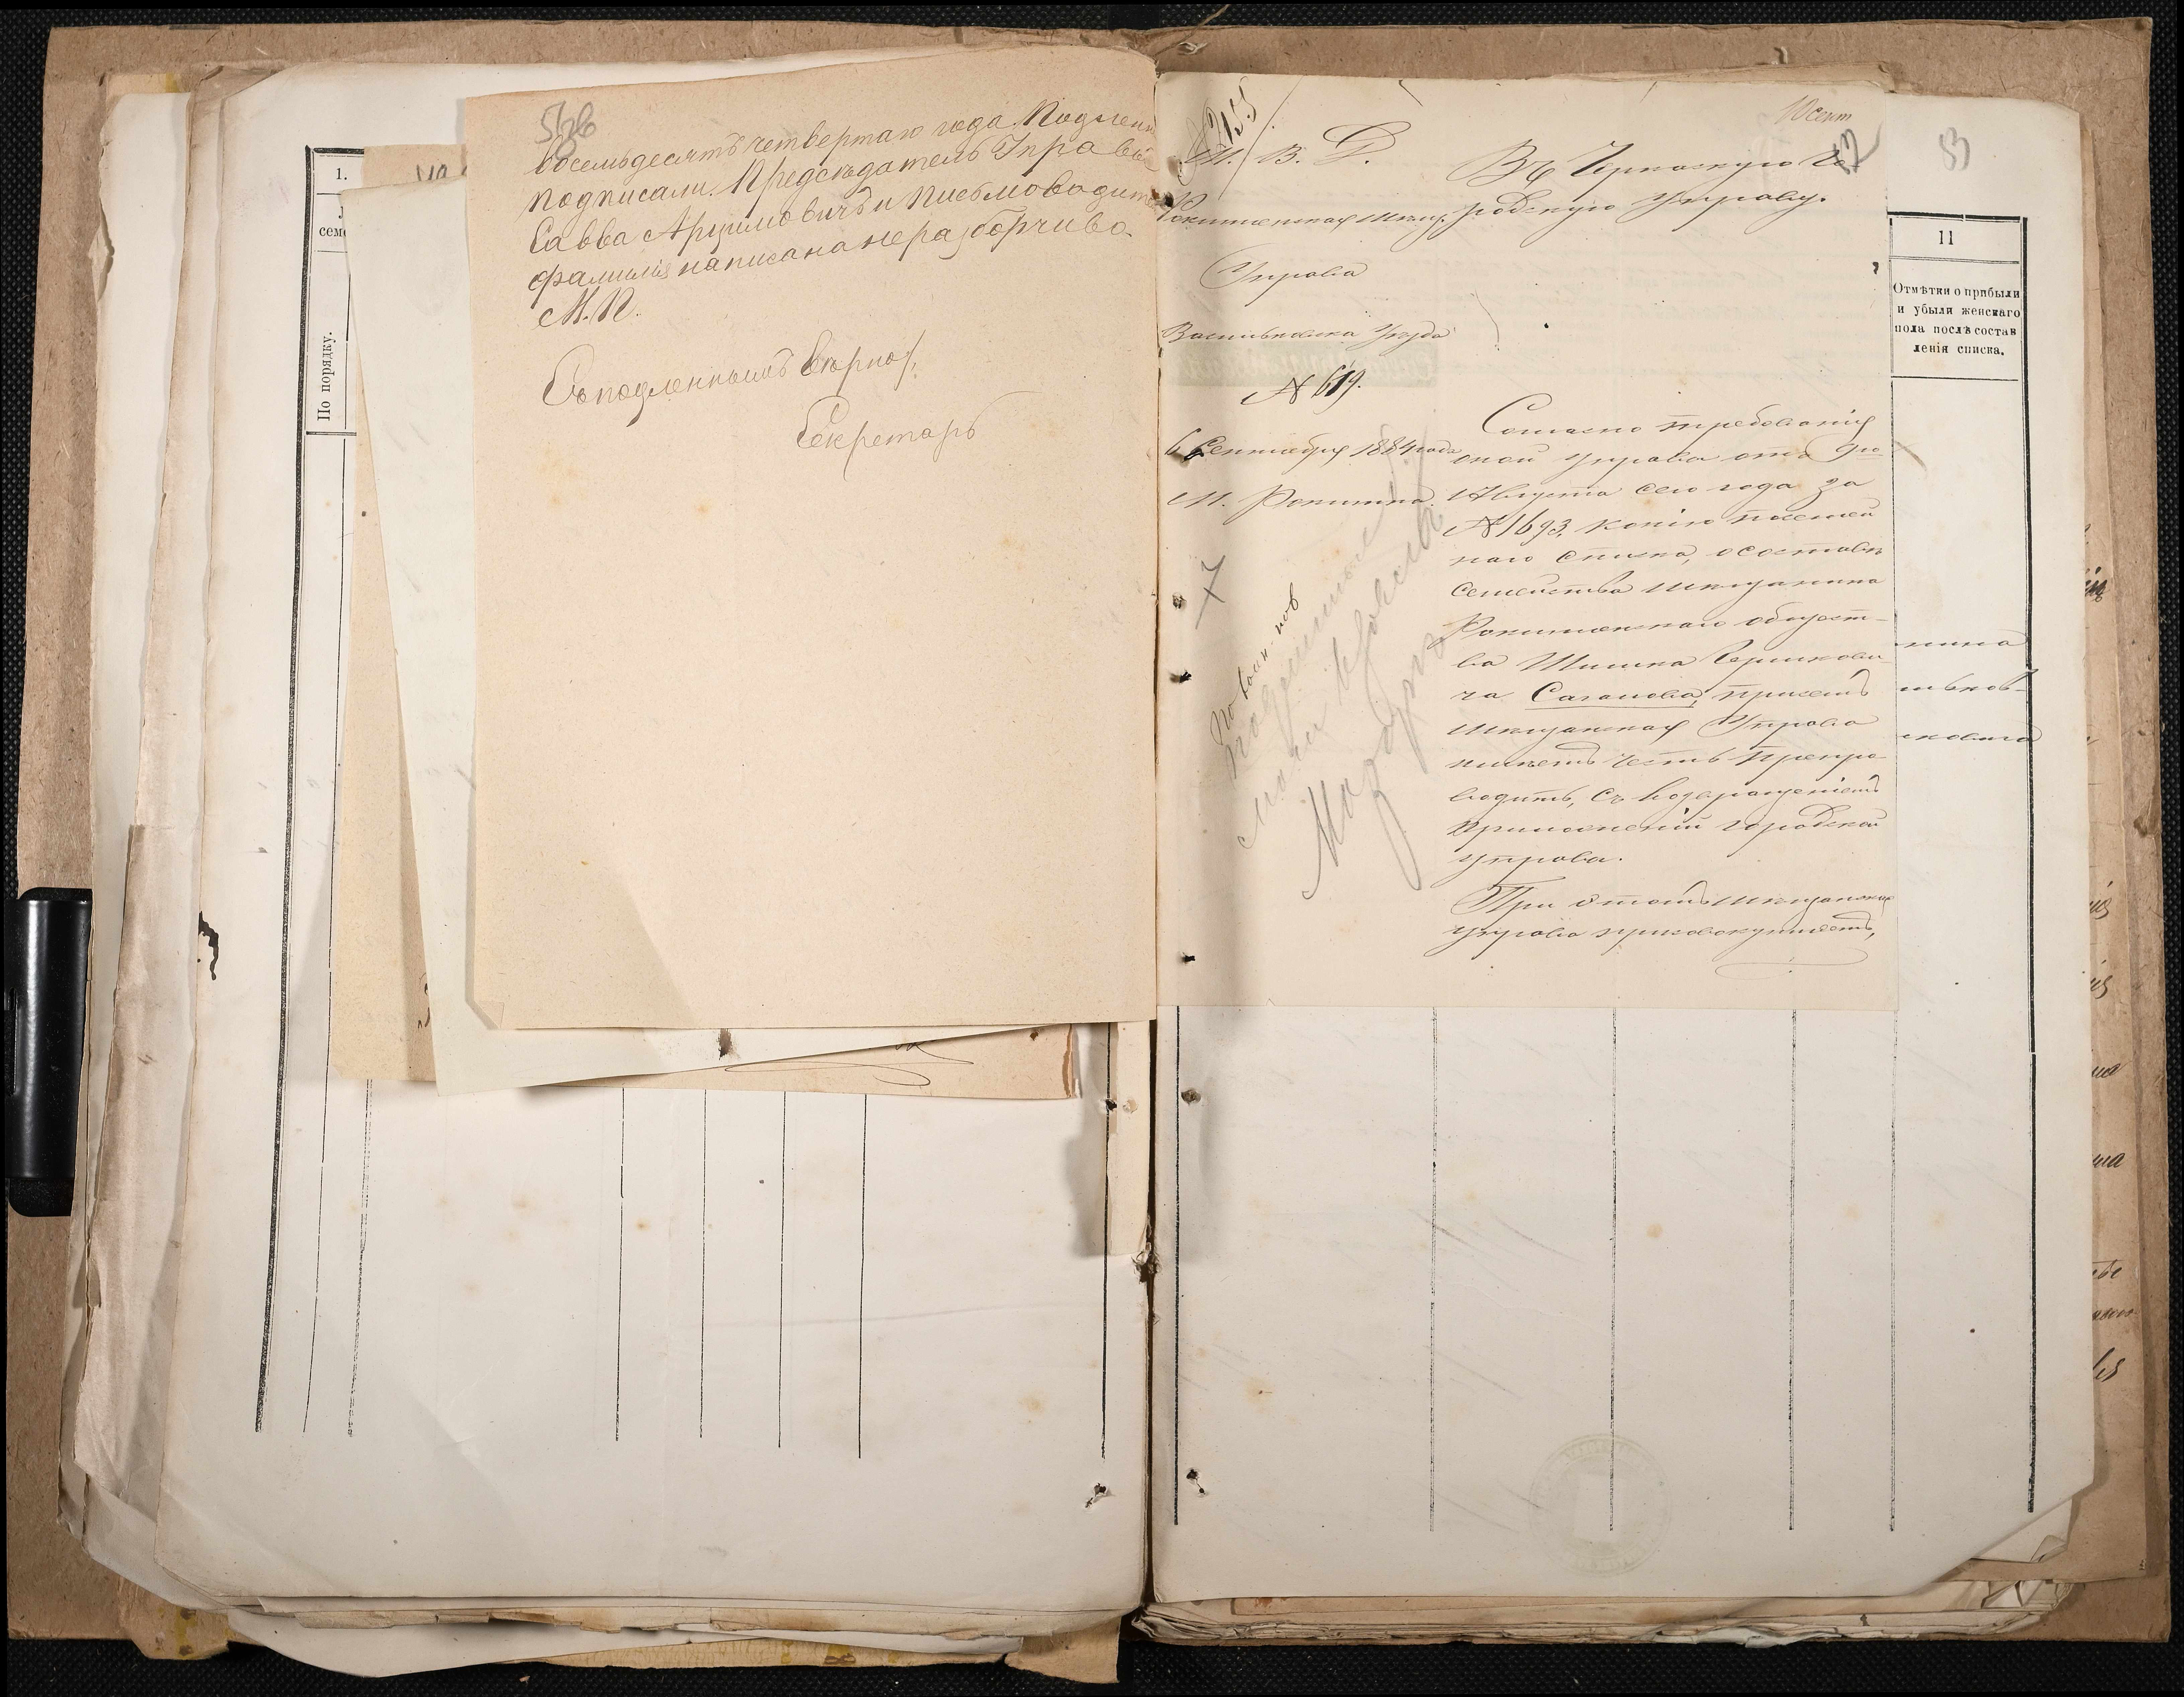 52об
восемьдесятъ четвертаго года. Подлин
подписали. Предсѣдатель Управы
Савва Арцимовичъ и Письмоводите
фамилія написана неразборчиво.
М. П.
Съ подленнымъ вѣрно:
Секретарь
1.
сем
По порядку.
10 Сент
М. В. Д.
Въ Черкаскую Го-
родскую Управу.
Рокитянская мѣщ.
Управа
Васильковска Уѣзда
№ 619.
6 Сентября 1884 года
М. Рокитна.
Согласно требованія
оной управы отъ 9го
Августа сего года за
№ 1693, копію посемей
наго списка, о составѣ
семейства мѣщанина
Рокитянскаго общест-
ва Шлиома Берикови-
ча Саганова, при семъ
мѣщанская Управа
имѣетъ честь препро-
водить, съ возвращеніемъ
приложеній городской
управы.
При этомъ мѣщанская
управа присовокупляетъ,
53
11
Отмѣтки о прибыли
и убыли женскаго
пола послѣ состав
ленія списка.